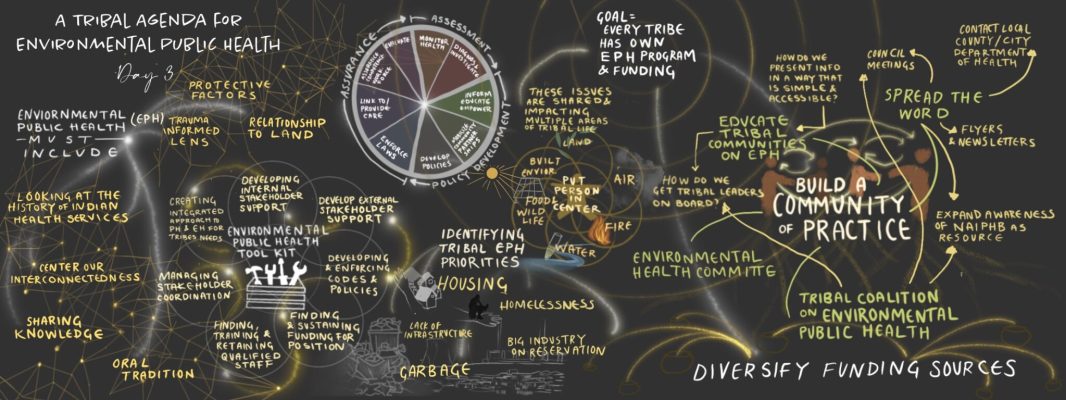 A TRIBAL AGENDA FOR
ENVIRONMENTAL PUBLIC HEALTH
Day 3
ENVIORNMENTAL
PUBLIC HEALTH (EPH)
—MUST—
INCLUDE
PROTECTIVE
FACTORS
TRAUMA
INFORMED
LENS
RELATIONSHIP
TO LAND
LOOKING AT THE
HISTORY OF INDIAN
HEALTH SERVICES
CENTER OUR
INTERCONNECTEDNESS
SHARING
KNOWLEDGE
ORAL
TRADITION
CREATING
INTEGRATED
APPROACH TO
PH & EH FOR
TRIBES NEEDS
DEVELOPING
INTERNAL
STAKEHOLDER
SUPPORT
DEVELOP EXTERNAL
STAKEHOLDER
SUPPORT
ENVIRONMENTAL
PUBLIC HEALTH
TOOL KIT
MANAGING
STAKEHOLDER
COORDINATION
DEVELOPING
& ENFORCING
CODES &
POLICIES
FINDING,
TRAINING &
RETAINING
QUALIFIED
STAFF
FINDING
& SUSTAINING
FUNDING FOR
POSITION
ASSURANCE
ASSESSMENT
POLICY DEVELOPMENT
EVALUATE
MONITOR
HEALTH
DIAGNOSE
INVESTIGATE
INFORM
EDUCATE
EMPOWER
MOBILIZE
COMMUNITY
PARTNER
SHIPS
DEVELOP
POLICIES
ENFORCE
LAWS
LINK TO/
PROVIDE
CARE
WORK
FORCE
IDENTIFYING
TRIBAL EPH
PRIORITIES
HOUSING
HOMELESSNESS
LACK OF
INFRASTRUCTURE
BIG INDUSTRY
ON RESERVATION
GARBAGE
GOAL=
EVERY TRIBE
HAS OWN
EPH PROGRAM
& FUNDING
THESE ISSUES
ARE SHARED &
IMPACTING
MULTIPLE AREAS
OF TRIBAL LIFE
LAND
BUILT
ENVIOR.
AIR
PUT
PERSON
IN
CENTER
FOOD/
WILD
LIFE
FIRE
WATER
HOW DO WE
PRESENT INFO
IN A WAY THAT
IS SIMPLE &
ACCESSIBLE?
COUNCIL
MEETINGS
CONTACT LOCAL
COUNTY/CITY
DEPARTMENT
OF HEALTH
SPREAD THE
WORD
FLYERS
& NEWSLETTERS
EDUCATE
TRIBAL
COMMUNITIES
ON EPH
HOW DO WE
GET TRIBAL LEADERS
ON BOARD?
BUILD A
COMMUNITY
OF PRACTICE
EXPAND AWARENESS
OF NAIPHB AS
RESOURCE
ENVIRONMENTAL
HEALTH COMMITTE
TRIBAL COALITION
ON ENVIRONMENTAL
PUBLIC HEALTH
DIVERSIFY FUNDING SOURCES